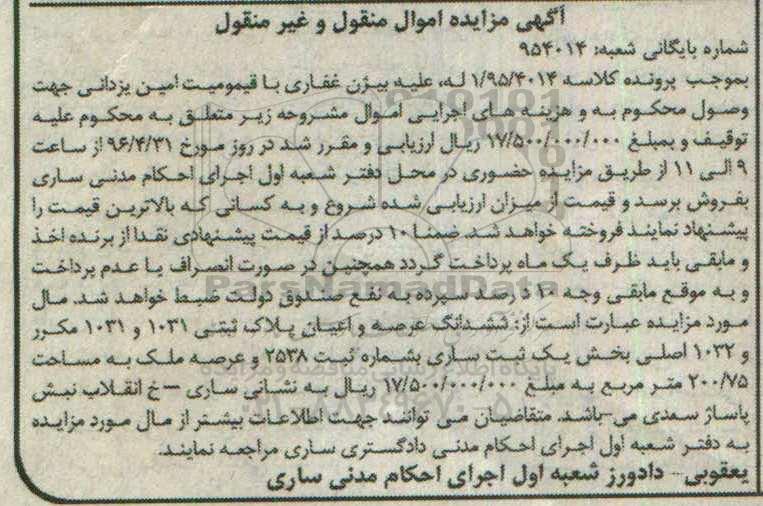 آگهی مزایده اموال منقول و غیر منقول
شماره بایگانی شعبه: ۹۵۴۰۱۴
بموجب پرونده کلاسه ۱/۹۵/۴۰۱۴ له، علیه بیژن غفاری با قیمومیت امین یزدانی جهت
وصول محکوم به و هزینه های اجرایی اموال مشروحه زیر متعلق به محکوم علیه
توقیف و بمبلغ ۱۷/۵۰۰/۰۰۰/۰۰۰ ریال ارزیابی و مقرر شد در روز مورخ ۹۶/۴/۳۱ از ساعت
۹ الی ۱۱ از طریق مزایده حضوری در محل دفتر شعبه اول اجرای احکام مدنی ساری
بفروش برسد و قیمت از میزان ارزیابی شده شروع و به کسانی که بالاترین قیمت را
پیشنهاد نمایند فروخته خواهد شد. ضمنا ۱۰ درصد از قیمت پیشنهادی نقدا از برنده اخذ
و مابقی باید ظرف یک ماه پرداخت گردد همچنین در صورت انصراف یا عدم پرداخت
و به موقع مابقی وجه ۱۰ درصد سپرده به نفع صندوق دولت ضبط خواهد شد. مال
مورد مزایده عبارت است از: ششدانگ عرصه و اعیان پلاک ثبتی ۱۰۳۱ و ۱۰۳۱ مکرر
و ۱۰۳۲ اصلی بخش یک ثبت ساری بشماره ثبت ۲۵۳۸ و عرصه ملک به مساحت
۲۰۰/۷۵ متر مربع به مبلغ ۱۷/۵۰۰/۰۰۰/۰۰۰ ریال به نشانی ساری – خ انقلاب نبش
پاساژ سعدی می-باشد. متقاضیان می توانند جهت اطلاعات بیشتر از مال مورد مزایده
به دفتر شعبه اول اجرای احکام مدنی دادگستری ساری مراجعه نمایند.
یعقوبی- دادورز شعبه اول اجرای احکام مدنی ساری
ParsNamadData
پایگاه اطلاع رسانی مناقصه و مزایده